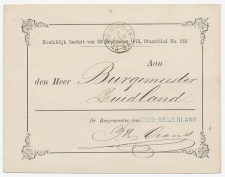 Koninklijk besluit van 26 September 1875, Staatsblad No. 123.
Aan
den Heer Burgemeester
Zuidland
De Burgemeester van OUD-BEIJERLAND